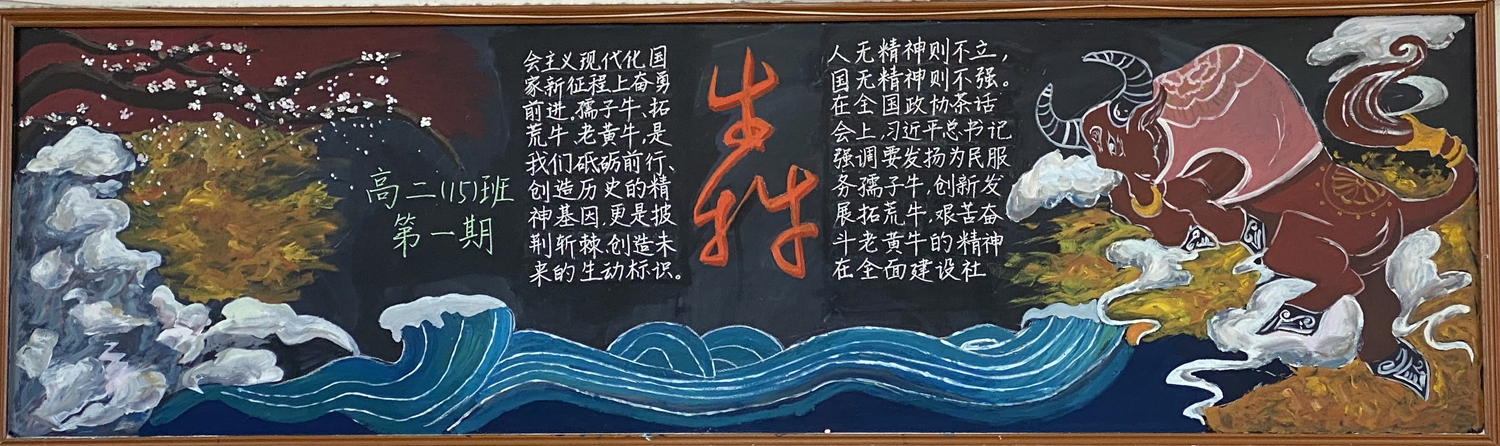 犇
人无精神则不立，
国无精神则不强。
在全国政协茶话
会上，习近平总书记
强调要发扬为民服
务孺子牛，创新发
展拓荒牛，艰苦奋
斗老黄牛的精神
在全面建设社
会主义现代化国
家新征程上奋勇
前进，孺子牛、拓
荒牛、老黄牛，是
我们砥砺前行、
创造历史的精
神基因，更是披
荆斩棘，创造未
来的生动标识。
高二(15)班
第一期